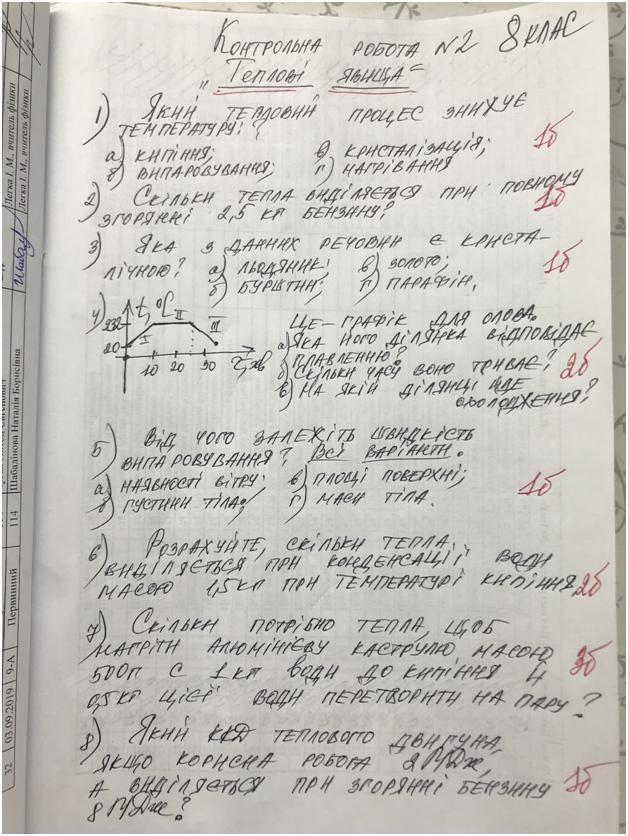 КОНТРОЛЬНА РОБОТА №2 8 КЛАС
"ТЕПЛОВІ ЯВИЩА"
1) ЯКИЙ ТЕПЛОВИЙ ПРОЦЕС ЗНИЖУЄ
ТЕМПЕРАТУРУ?
а) КИПІННЯ; в) КРИСТАЛІЗАЦІЯ; 1б
б) ВИПАРОВУВАННЯ; г) НАГРІВАННЯ
2) СКІЛЬКИ ТЕПЛА ВИДІЛЯЄТЬСЯ ПРИ ПОВНОМУ 1б
ЗГОРЯННІ 2,5 КГ БЕНЗИНУ?
3) ЯКА З ДАННИХ РЕЧОВИН Є КРИСТА-
ЛІЧНОЮ? а) ЛЬОДЯНИК; в) ЗОЛОТО; 1б
б) БУРШТИН; г) ПАРАФІН.
4) t, °C
232 I II III
20
10 30 50 τ, хв
ЦЕ – ГРАФІК ДЛЯ ОЛОВА.
а) ЯКА ЙОГО ДІЛЯНКА ВІДПОВІДАЄ
ПЛАВЛЕННЮ?
б) СКІЛЬКИ ЧАСУ ВОНО ТРИВАЄ? 2б
в) НА ЯКІЙ ДІЛЯНЦІ ЙДЕ
ОХОЛОДЖЕННЯ?
5) ВІД ЧОГО ЗАЛЕЖІТЬ ШВИДКІСТЬ
ВИПАРОВУВАННЯ? ВСІ ВАРІАНТИ.
а) НАЯВНОСТІ ВІТРУ; в) ПЛОЩІ ПОВЕРХНІ; 1б
б) ГУСТИНИ ТІЛА; г) МАСИ ТІЛА.
6) РОЗРАХУЙТЕ, СКІЛЬКИ ТЕПЛА
ВИДІЛЯЄТЬСЯ ПРИ КОНДЕНСАЦІЇ ВОДИ
МАСОЮ 1,5 КГ ПРИ ТЕМПЕРАТУРІ КИПІННЯ. 2б
7) СКІЛЬКИ ПОТРІБНО ТЕПЛА, ЩОБ
НАГРІТИ АЛЮМІНІЄВУ КАСТРУЛЮ МАСОЮ 3б
500Г С 1 КГ ВОДИ ДО КИПІННЯ Й
0,5 КГ ЦІЄЇ ВОДИ ПЕРЕТВОРИТИ НА ПАРУ?
8) ЯКИЙ ККД ТЕПЛОВОГО ДВИГУНА,
ЯКЩО КОРИСНА РОБОТА 2 МДж,
А ВИДІЛЯЄТЬСЯ ПРИ ЗГОРЯННІ БЕНЗИНУ 1б
8 МДж?
Легка І. М., вчитель фізики
Легка І. М., вчитель фізики
Шабадінова Наталія Борисівна
114
Первинний
9-А
03.09.2019
32